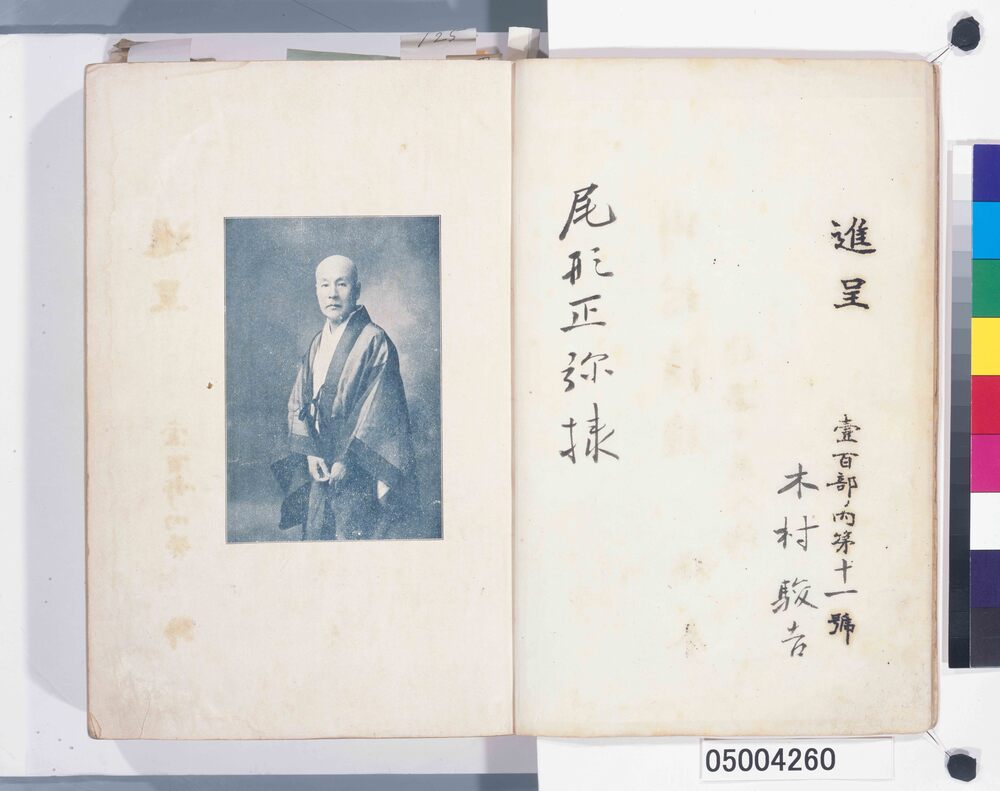 進呈
壹百部ノ内第十一號
木村駿吉
尾形正弥様
05004260
125